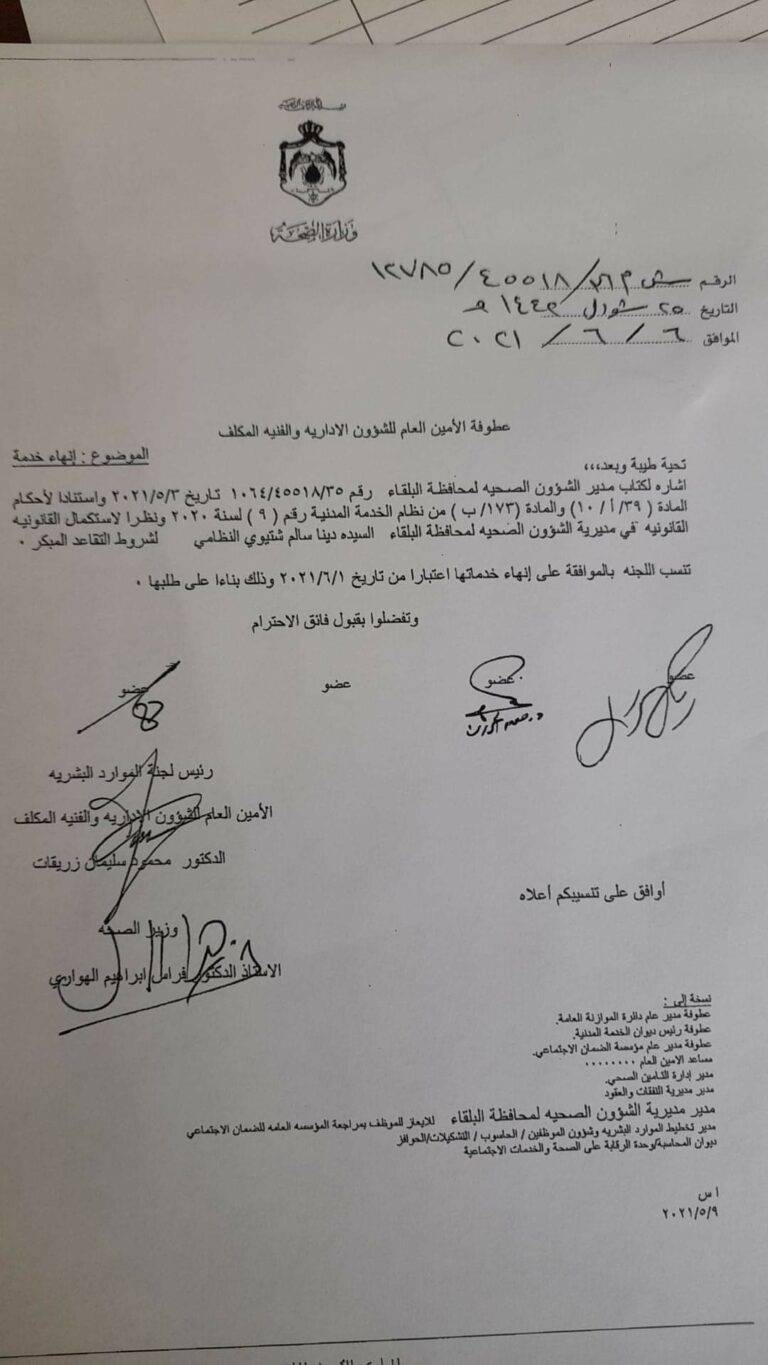 وزارة الصحة
الرقم ش م٣٦/٤٥٥١٨/١٢٧٨٥
التاريخ ٢٥ شوال ١٤٤٢ هـ
الموافق ٦/٦/٢٠٢١
عطوفة الأمين العام للشؤون الاداريه والفنيه المكلف
الموضوع : إنهاء خدمة
تحية طيبة وبعد،،،
اشاره لكتاب مدير الشؤون الصحيه لمحافظة البلقاء رقم ١٠٦٤/٤٥٥١٨/٣٥ تاريخ ٢٠٢١/٥/٣ واستنادا لأحكام
المادة ( ٣٩/أ / ١٠) والمادة (١٧٣/ ب ) من نظام الخدمة المدنية رقم ( ٩ ) لسنة ٢٠٢٠ ونظرا لاستكمال القانونيه
القانونيه في مديرية الشؤون الصحيه لمحافظة البلقاء السيده دينا سالم شتيوي النظامي لشروط التقاعد المبكر ٠
تنسب اللجنه بالموافقة على إنهاء خدماتها اعتبارا من تاريخ ٢٠٢١/٦/١ وذلك بناءا على طلبها ٠
وتفضلوا بقبول فائق الاحترام
عضو عضو عضو عضو
رئيس لجنة الموارد البشريه
الأمين العام للشؤون الإداريه والفنيه المكلف
الدكتور محمود سليمان زريقات
أوافق على تنسيبكم أعلاه
وزير الصحه
الاستاذ الدكتور فراس ابراهيم الهواري
نسخة إلى :
عطوفة مدير عام دائرة الموازنة العامة.
عطوفة رئيس ديوان الخدمة المدنية.
عطوفة مدير عام مؤسسة الضمان الاجتماعي.
مساعد الامين العام ٠٠٠٠٠٠٠٠
مدير إدارة التامين الصحي.
مدير مديرية النفقات والعقود
مدير مديرية الشؤون الصحيه لمحافظة البلقاء للايعاز للموظف بمراجعة المؤسسه العامه للضمان الاجتماعي
مدير تخطيط الموارد البشريه وشؤون الموظفين / الحاسوب / التشكيلات/الحوافز
ديوان المحاسبة/وحدة الرقابة على الصحة والخدمات الاجتماعية
ا س
٢٠٢١/٥/٩